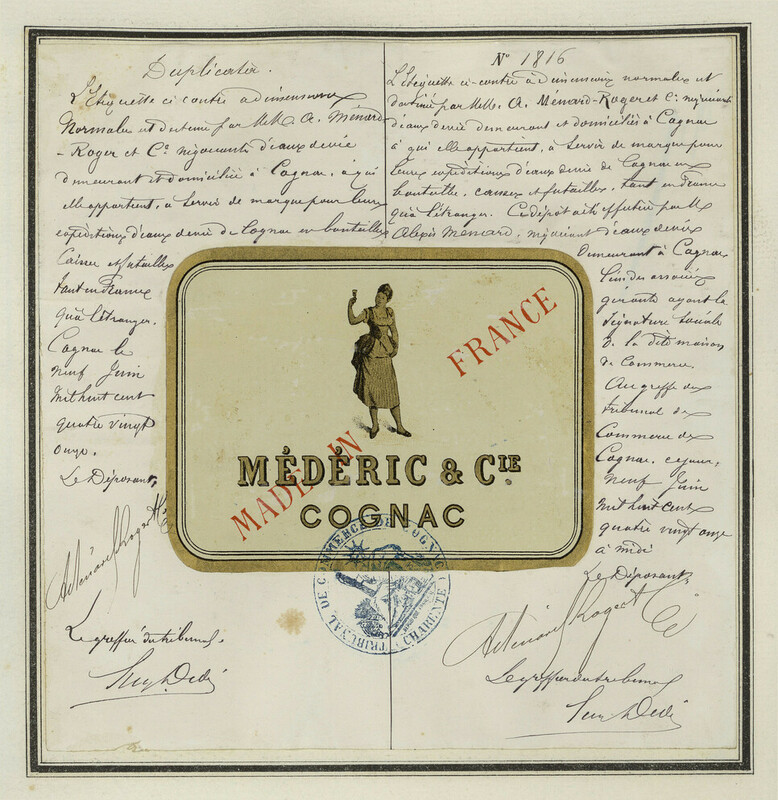 Duplicata.
L'Etiquette ci contre a dimensions
Normales est destinée par M.M. A. Ménard
-Roger et Cie négociants d'eaux de vie
demeurant et domiciliés à Cognac, à qui
elle appartient, à servir de marque pour leurs
expéditions d'eaux de vie de Cognac en bouteilles
Caisses et futailles
tant en France
qu'à l'étranger.
Cognac le
neuf Juin
mil huit cent
quatre vingt
onze.
Le Déposant,
A Ménard Roger & Cie
Le greffier du tribunal
No 1816
L'Etiquette ci-contre à dimensions normales est
destinée par M.M. A. Ménard-Roger et Cie négociants
d'eaux de vie demeurant et domiciliés à Cognac
à qui elle appartient, à servir de marque pour
leurs expéditions d'eaux de vie de Cognac en
bouteilles, caisses et futailles, tant en France
qu'à l'étranger. Ce dépôt a été effectué par M.
Alexis Ménard, négociant d'eaux de vie
Demeurant à Cognac
l'un des associés
gérants ayant la
signature sociale
de la dite maison
de Commerce.
Au greffe du
tribunal de
Commerce de
Cognac, ce jour,
neuf Juin
mil huit cent
quatre vingt onze
à midi
Le Déposant,
A Ménard Roger & Cie
Le greffier du tribunal
MADE IN FRANCE
MÉDÉRIC & CIE.
COGNAC
TRIBUNAL DE COMMERCE DE COGNAC (CHARENTE)